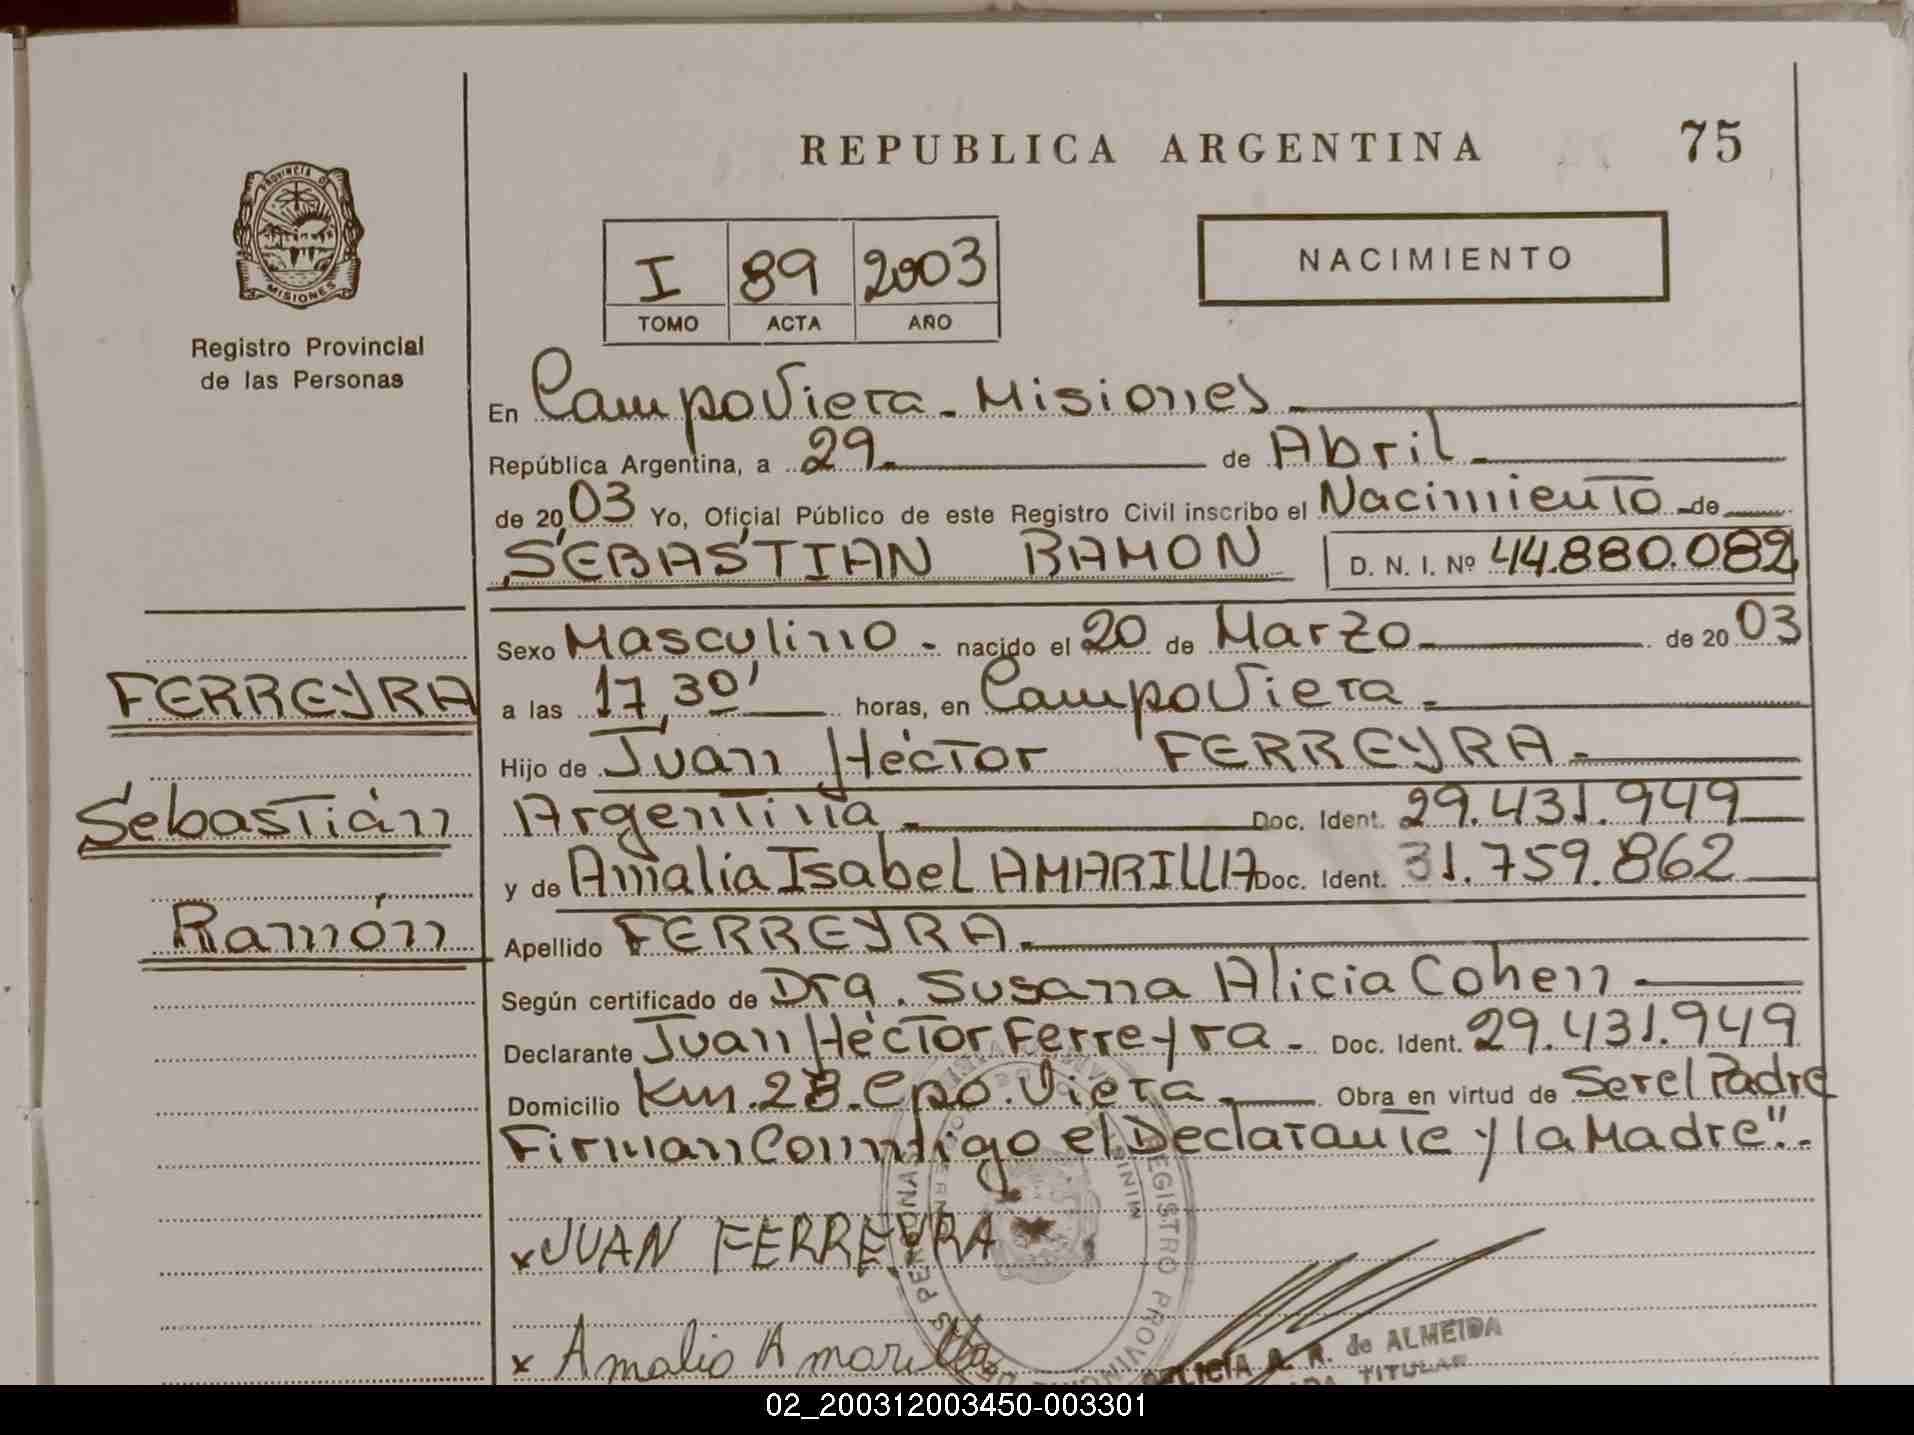 REPUBLICA ARGENTINA 75
PROVINCIA DE
MISIONES
Registro Provincial
de las Personas
NACIMIENTO
I 89 2003
TOMO ACTA AÑO
En Campo Viera - Misiones
República Argentina, a 29 de Abril
de 2003 Yo, Oficial Público de este Registro Civil inscribo el Nacimiento de
SEBASTIAN RAMON D. N. I. Nº 44.880.082
Sexo Masculino - nacido el 20 de Marzo de 2003
FERREYRA
a las 17,30' horas, en Campo Viera
Hijo de Juan Héctor FERREYRA
Sebastián
Argentina Doc. Ident. 29.431.949
y de Amalia Isabel AMARILLA Doc. Ident. 31.759.862
Ramón
Apellido FERREYRA
Según certificado de Dra. Susana Alicia Cohen
Declarante Juan Héctor Ferreyra - Doc. Ident. 29.431.949
Domicilio Km. 28 - Cpo. Viera Obra en virtud de Ser el Padre
Firman Conmigo el Declarante y la Madre".-
x JUAN FERREYRA
x Amalia Amarilla
REGISTRO PROVIN
A. R. de ALMEIDA
TITULAR
02_200312003450-003301